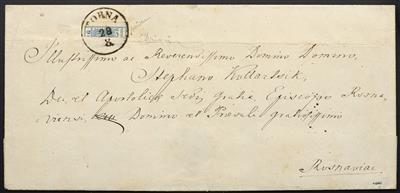 TORNA
28
X.
Illustrissimo ac Reverendissimo Domino Domino,
Stephano Kollartsik,
Dei, et Apostolicæ Sedis gratia, Episcopo Rosna-
viensi, Domino et Præsuli gratiosissimo
Rosnaviae.